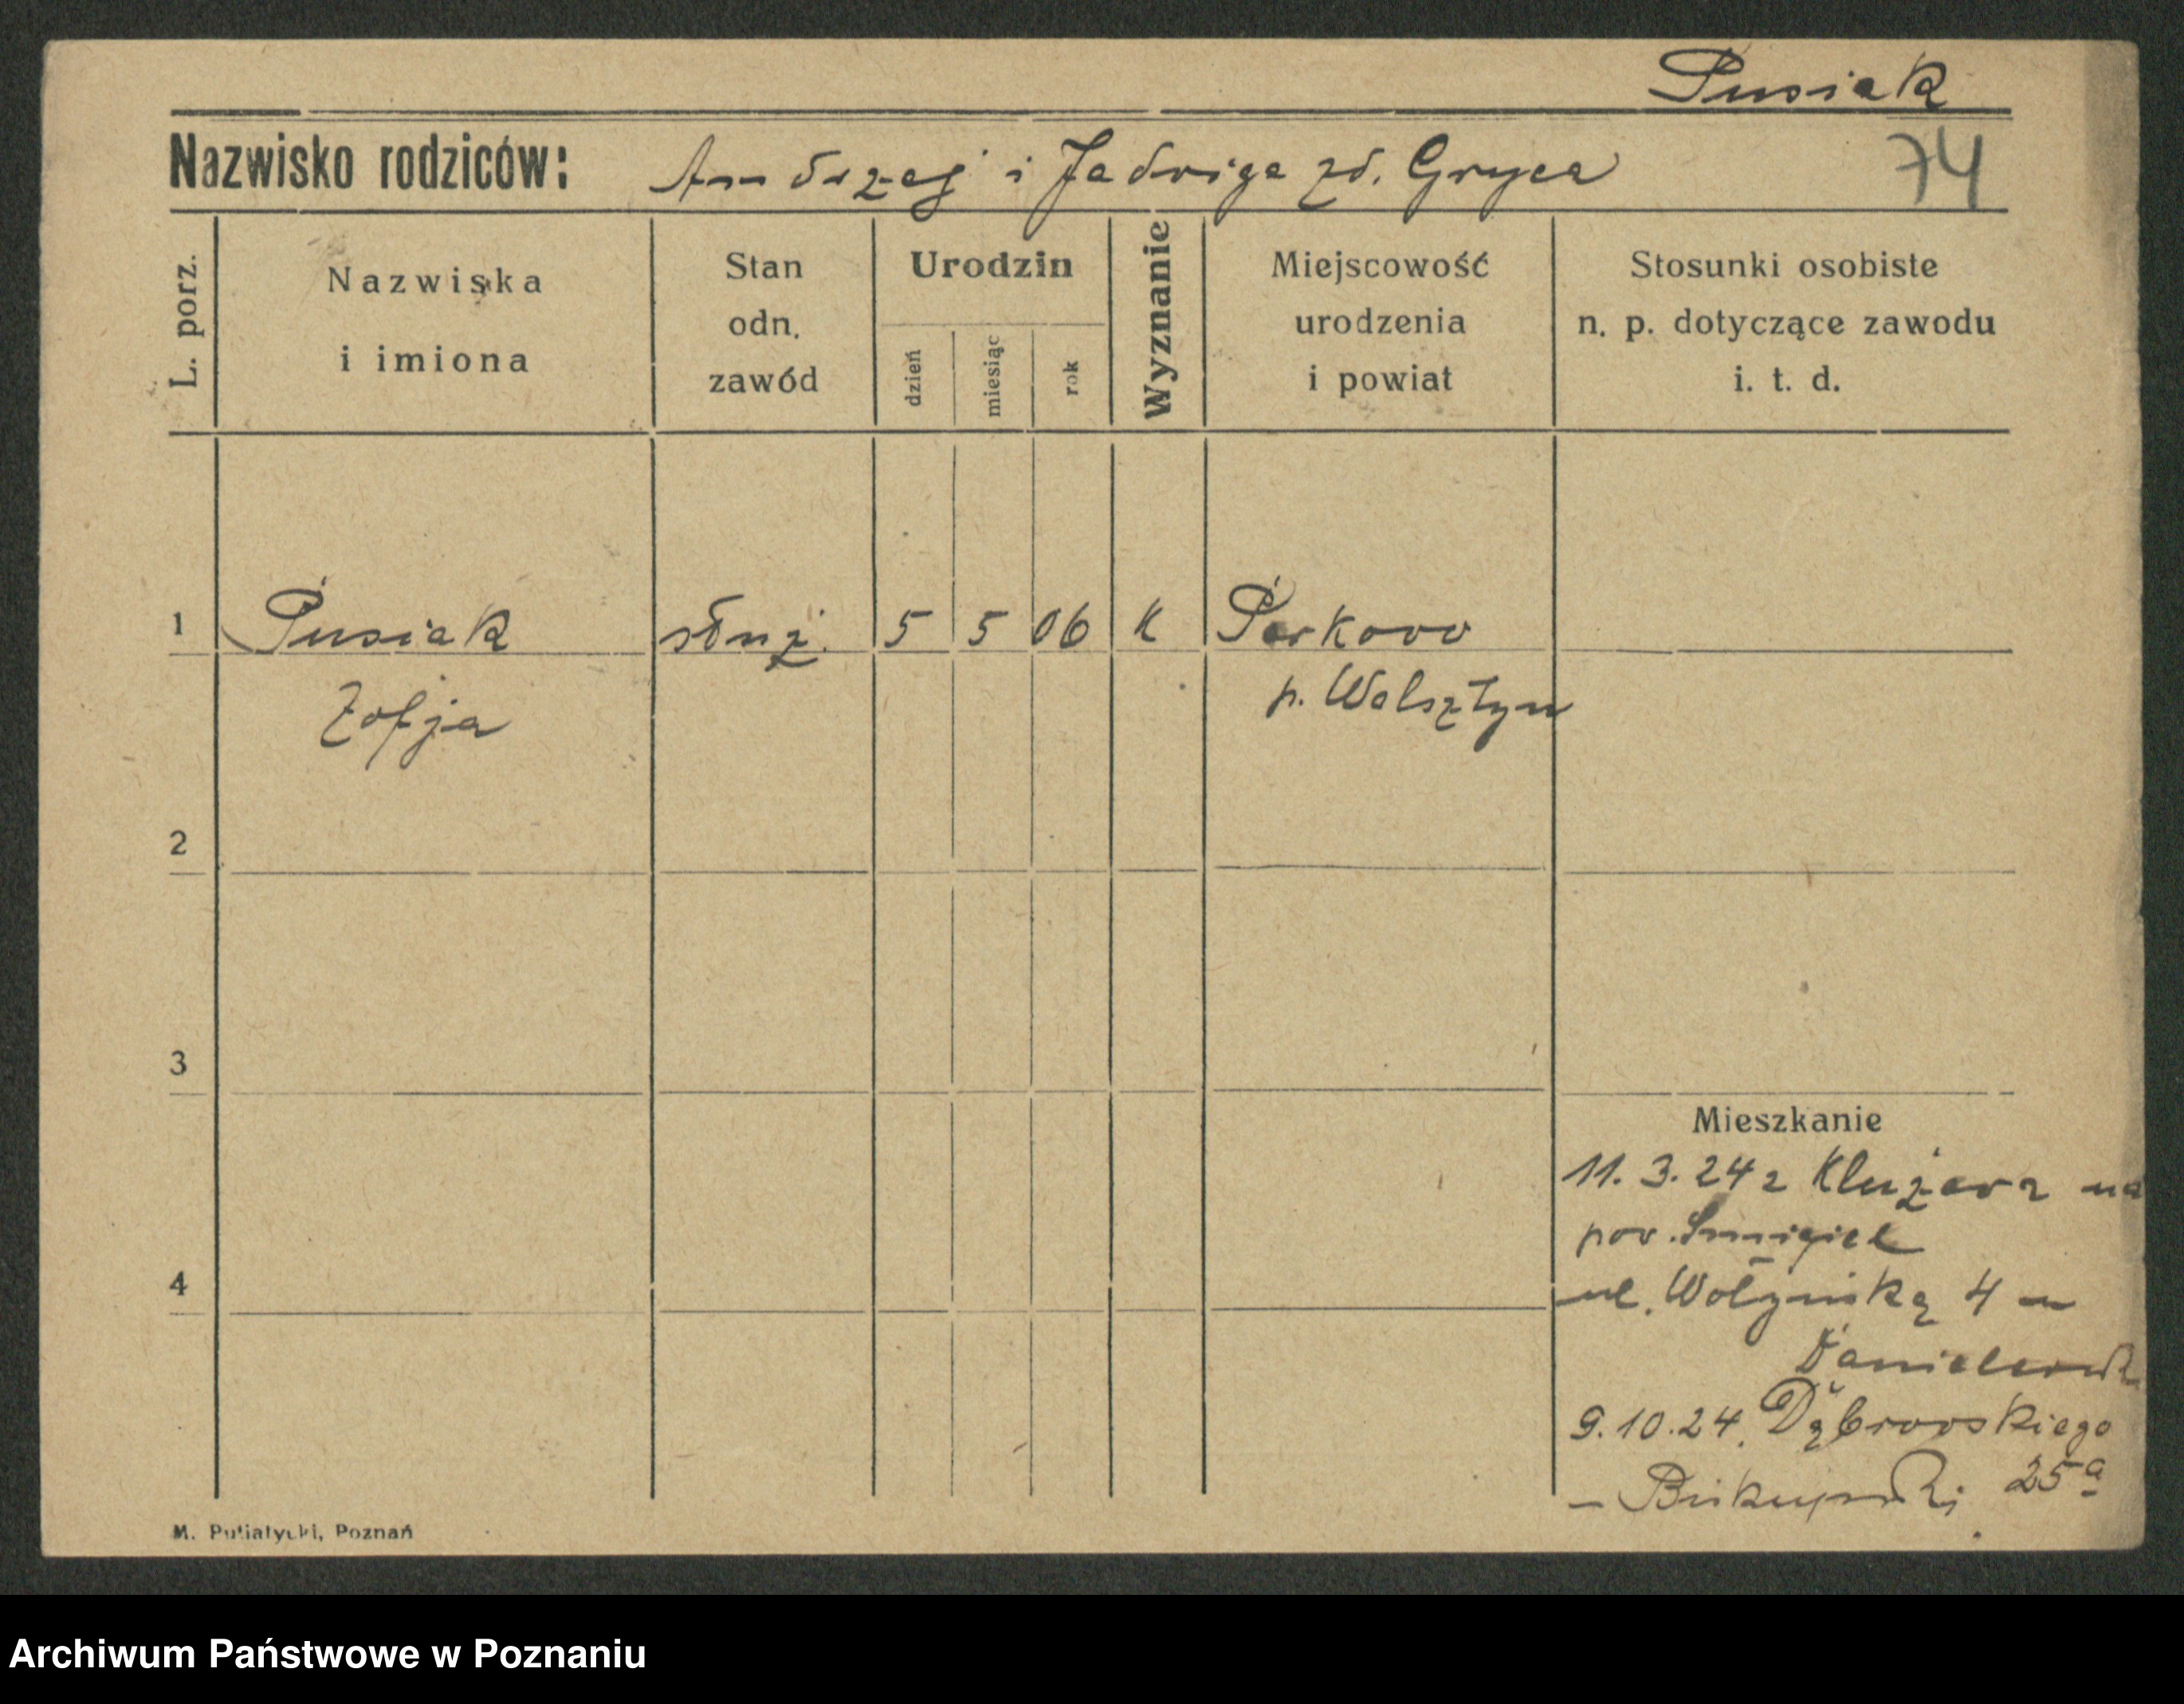 Pusiak
Nazwisko rodziców: Andrzej i Jadwiga zd. Gryca
74
L. porz.
Nazwiska i imiona
Stan odn. zawód
Urodzin
dzień
miesiąc
rok
Wyznanie
Miejscowość urodzenia i powiat
Stosunki osobiste n. p. dotyczące zawodu i. t. d.
1 Pusiak służ. 5 5 06 K Perkowo
Zofja p. Wolsztyn
2
3
Mieszkanie
11.3.24 z
pow. Śmigiel
4
ul. Wołyńską 4
9.10.24. Dąbrowskiego
– 25a
M. Putiatycki, Poznań
Archiwum Państwowe w Poznaniu